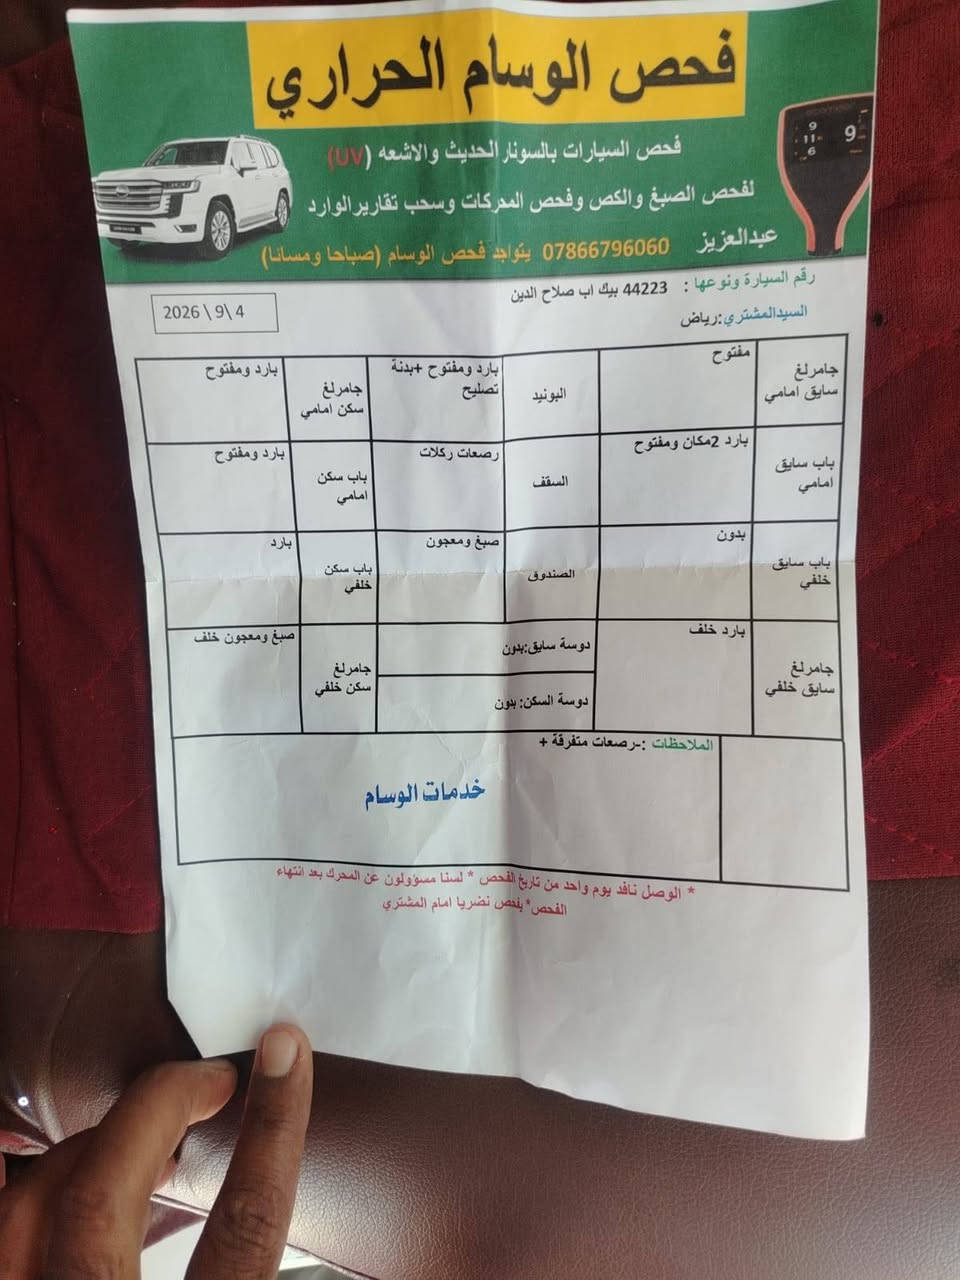 فحص الوسام الحراري
فحص السيارات بالسونار الحديث والاشعه (UV)
لفحص الصبغ والكص وفحص المحركات وسحب تقارير الوارد
عبدالعزيز 07866796060 يتواجد فحص الوسام (صباحا ومسائا)
9
11
6
9
رقم السيارة ونوعها : 44223 بيك اب صلاح الدين
السيدالمشتري:رياض
2026 \ 9\ 4
جامرلغ سايق امامي
مفتوح
البونيد
بارد ومفتوح +بدنة تصليح
جامرلغ سكن امامي
بارد ومفتوح
باب سايق امامي
بارد 2مكان ومفتوح
السقف
رصعات ركلات
باب سكن امامي
بارد ومفتوح
باب سايق خلفي
بدون
الصندوق
صبغ ومعجون
باب سكن خلفي
بارد
جامرلغ سايق خلفي
بارد خلف
دوسة سايق:بدون
دوسة السكن: بدون
جامرلغ سكن خلفي
صبغ ومعجون خلف
الملاحظات :-رصعات متفرقة +
خدمات الوسام
* الوصل نافد يوم واحد من تاريخ الفحص * لسنا مسؤولون عن المحرك بعد انتهاء
الفحص* يفحص نضريا امام المشتري